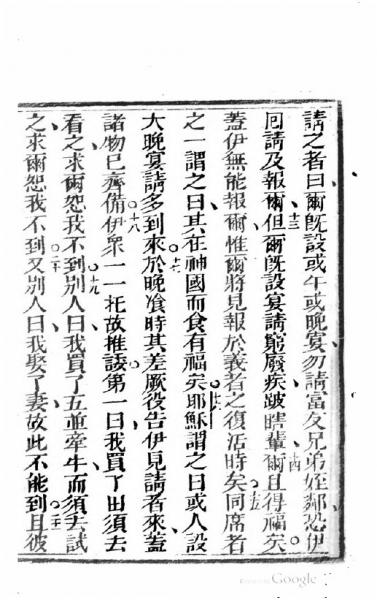 請之者曰爾既設或午或晚宴勿請富友兄弟姪鄰恐伊
十三
回請及報爾但爾既設宴請窮廢疾跛瞎輩爾且得福矣
十四
蓋伊無能報爾惟爾將見報於義者之復活時矣同席者
十五
之一謂之曰其在神國而食有福矣耶穌謂之曰或人設
十六
大晚宴請多到來於晚飡時其差厥役告伊見請者來蓋
十七
諸物已齊備伊眾一一托故推諉第一曰我買了田須去
十八
看之求爾恕我不到別人曰我買了五並牽牛而須去試
十九
之求爾恕我不到又別人曰我娶了妻故此不能到且彼
二十
二一
Google